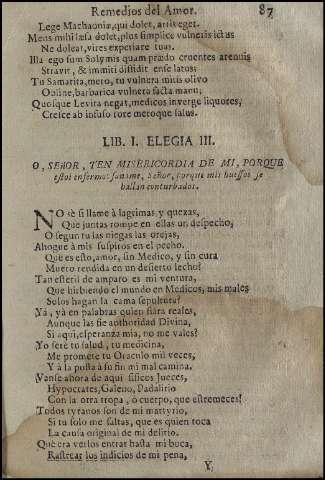 Remedios del Amor. 87
Lege Machaonia, qui dolet, arsit eget.
Mens mihi læsa dolet, plus simplice vulneris ictus
Ne dolear, vires experiare tuas.
Illa ego sum Solymis quam prædo cruentes arenis
Stravit, & immiti diffidit ense latus.
Tu Samarita, mero, tu vulnera mitis olivo
Obline, barbarica vulnera facta manu;
Quosque Levita negat, medicos inverge liquores,
Cresce ab infuso rore meroque salus.
LIB. I. ELEGIA III.
O, SEñOR, TEN MISERICORDIA DE MI, PORQUE
estoi enferma: saname, Señor, porque mis huessos se
hallan conturbados.
NO sè si llame à lagrimas y quexas,
Que juntas rompe en ellas un despecho,
O segun tu las niegas las orejas,
Ahogue à mis suspiros en el pecho.
Que es esto, amor, sin Medico, y sin cura
Muero rendida en un desierto lecho?
Tan esteril de amparo es mi ventura,
Que hirbiendo el mundo en Medicos, mis males
Solos hagan la cama sepultura?
Yà, yà en palabras quien fiàra reales,
Aunque las fie authoridad Divina,
Si aqui, esperanza mia, no me vales?
Yo serè tu salud, tu medicina,
Me promete tu Oraculo mil veces,
Y à la posta à su fin mi mal camina.
Vanse ahora de aqui fisicos Jueces,
Hypocrates, Galeno, Padalirio
Con la otra tropa, ò cuerpo, que estremeces!
Todos tyranos son de mi martyrio,
Si tu solo me faltas, que es quien toca
La causa original de mi delirio.
Que era verlos entrar hasta mi boca,
Rastrear los indicios de mi pena,
Y,